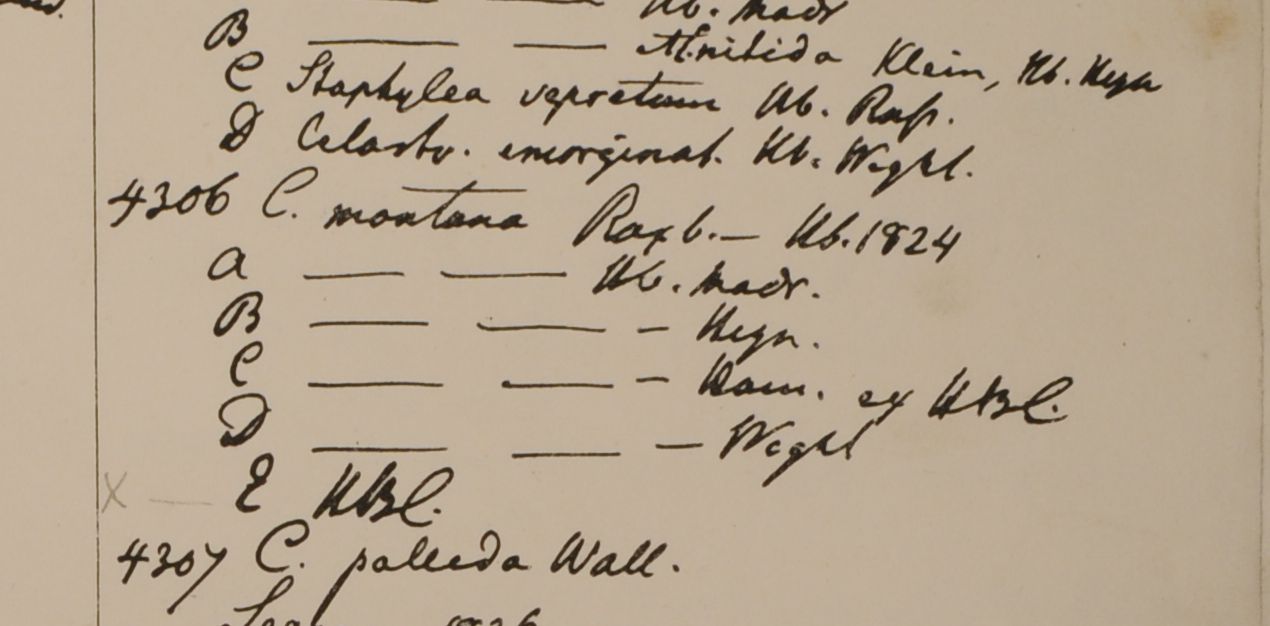 Hb. Madr
B — — M. nitida Klein, Hb. Heyn
C Staphylea vepretum Hb. Rxb.
D Celastr. emarginat. Hb. Wight.
4306 C. montana Roxb. — Hb. 1824
a — — Hb. Madr.
B — — — Heyn.
C — — — Ham. ex HBC.
D — — — Wight
X — E HBC.
4307 C. pallida Wall.